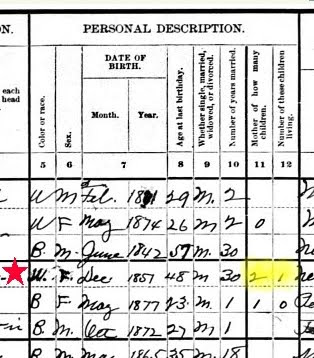 ON. PERSONAL DESCRIPTION.
each
head
Color or race.
Sex.
DATE OF BIRTH.
Month. Year.
Age at last birthday.
Whether single, married, widowed, or divorced.
Number of years married.
Mother of how many children.
Number of these children living.
5 6 7 8 9 10 11 12
W M Feb. 29 M. 2
W F May 1874 26 M 2 0
B. M. June 1842 57 M. 30
W. F. Dec 48 M 30 2 1
B F May 1877 23 M 1 1 0
B M. Oct 1872 27 M 1
B M 1865 35 M 18